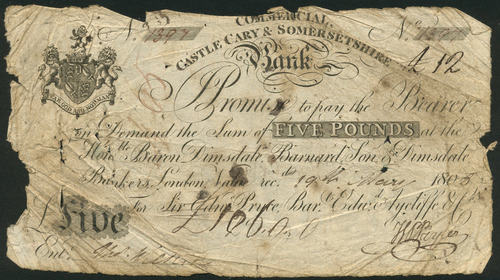 COMMERCIAL
No. 1397
CASTLE CARY & SOMERSETSHIRE
Bank
£12
Promise to pay the Bearer
on Demand the Sum of FIVE POUNDS at the
Baron Dimsdale Barnard Son & Dimsdale
Bankers London, Value rec.d 19th May 180
For Sir Edwd. Pryce, Bart. Edwd. Aycliffe & Co.
£Five
Ent.